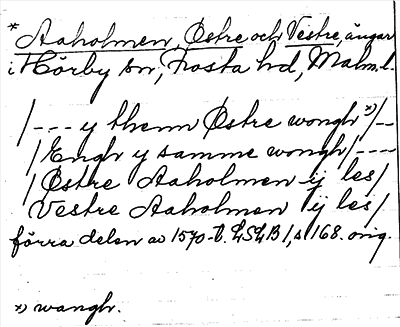 * Aaholmen, Østre och Vestre, ängar
i Hörby sn, Frosta hd, Malm. l.
/--- y thenn Østre wongh *)/--
/Engh y samme wongh/----
/Østre Aaholmen ij les/
Vestre Aaholmen ij les/
förra delen av 1570-t. LSLB 1, s 168. orig.
*) wangh.